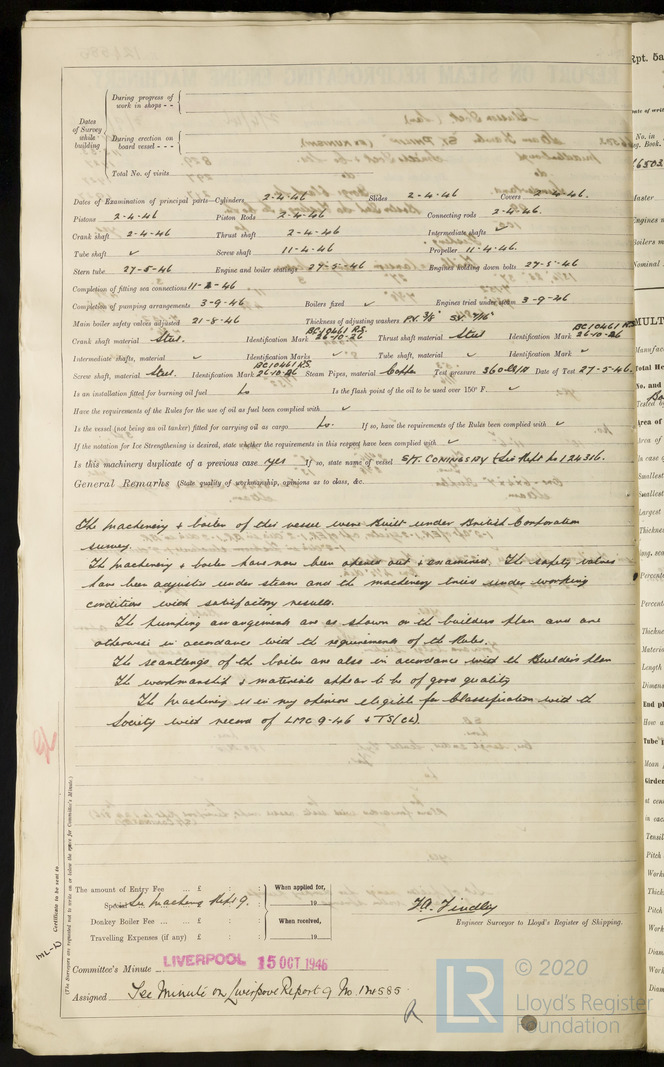 Dates of Survey while building
During progress of work in shops - -
During erection on board vessel - - -
Total No. of visits
Dates of Examination of principal parts—Cylinders 2-4-46 Slides 2-4-46 Covers 2-4-46.
Pistons 2-4-46 Piston Rods 2-4-46 Connecting rods 2-4-46.
Crank shaft 2-4-46 Thrust shaft 2-4-46 Intermediate shafts ✓
Tube shaft ✓ Screw shaft 11-4-46 Propeller 11-4-46.
Stern tube 27-5-46 Engine and boiler seatings 27-5-46 Engines holding down bolts 27-5-46
Completion of fitting sea connections 11-2-46
Completion of pumping arrangements 3-9-46 Boilers fixed ✓ Engines tried under steam 3-9-46
Main boiler safety valves adjusted 21-8-46 Thickness of adjusting washers P.V. 3/8 S.V. 7/16
Crank shaft material Steel. Identification Mark BC10461 R.S. 26-10-26 Thrust shaft material Steel Identification Mark BC10461 R.S. 26-10-26
Intermediate shafts, material ✓ Identification Marks ✓ Tube shaft, material ✓ Identification Mark ✓
Screw shaft, material Steel. Identification Mark BC10461 R.S. 26-10-26 Steam Pipes, material Copper Test pressure 360 Date of Test 27-5-46.
Is an installation fitted for burning oil fuel No Is the flash point of the oil to be used over 150° F. ✓
Have the requirements of the Rules for the use of oil as fuel been complied with ✓
Is the vessel (not being an oil tanker) fitted for carrying oil as cargo No. If so, have the requirements of the Rules been complied with ✓
If the notation for Ice Strengthening is desired, state whether the requirements in this respect have been complied with ✓
Is this machinery duplicate of a previous case Yes If so, state name of vessel S/T. CONINGSBY (Liv Rept No 124316.
General Remarks (State quality of workmanship, opinions as to class, &c.
The machinery & boiler of this vessel were Built under British Corporation
survey.
The machinery & boiler have now been opened out & examined. The safety valves
have been adjusted under steam and the machinery tried under working
conditions with satisfactory results.
The pumping arrangements are as shown on the builders plan and are
otherwise in accordance with the requirements of the Rules.
The scantlings of the boiler are also in accordance with the Builders plan
The workmanship & materials appear to be of good quality
The machinery is in my opinion eligible for Classification with the
Society with record of LMC 9-46 & TS(CL).
Certificate to be sent to
(The Surveyors are requested not to write on or below the space for Committee's Minute.)
The amount of Entry Fee ... £ : :
Special See Machinery Rept 9.
Donkey Boiler Fee ... ... £ : :
Travelling Expenses (if any) £ : :
When applied for,
19
When received,
19
Findley
Engineer Surveyor to Lloyd's Register of Shipping.
Committee's Minute LIVERPOOL 15 OCT 1946
Assigned See Minute on Liverpool Report 9 No. 124585
LR
© 2020
Lloyd's Register
Foundation
Rpt. 5a
No. in